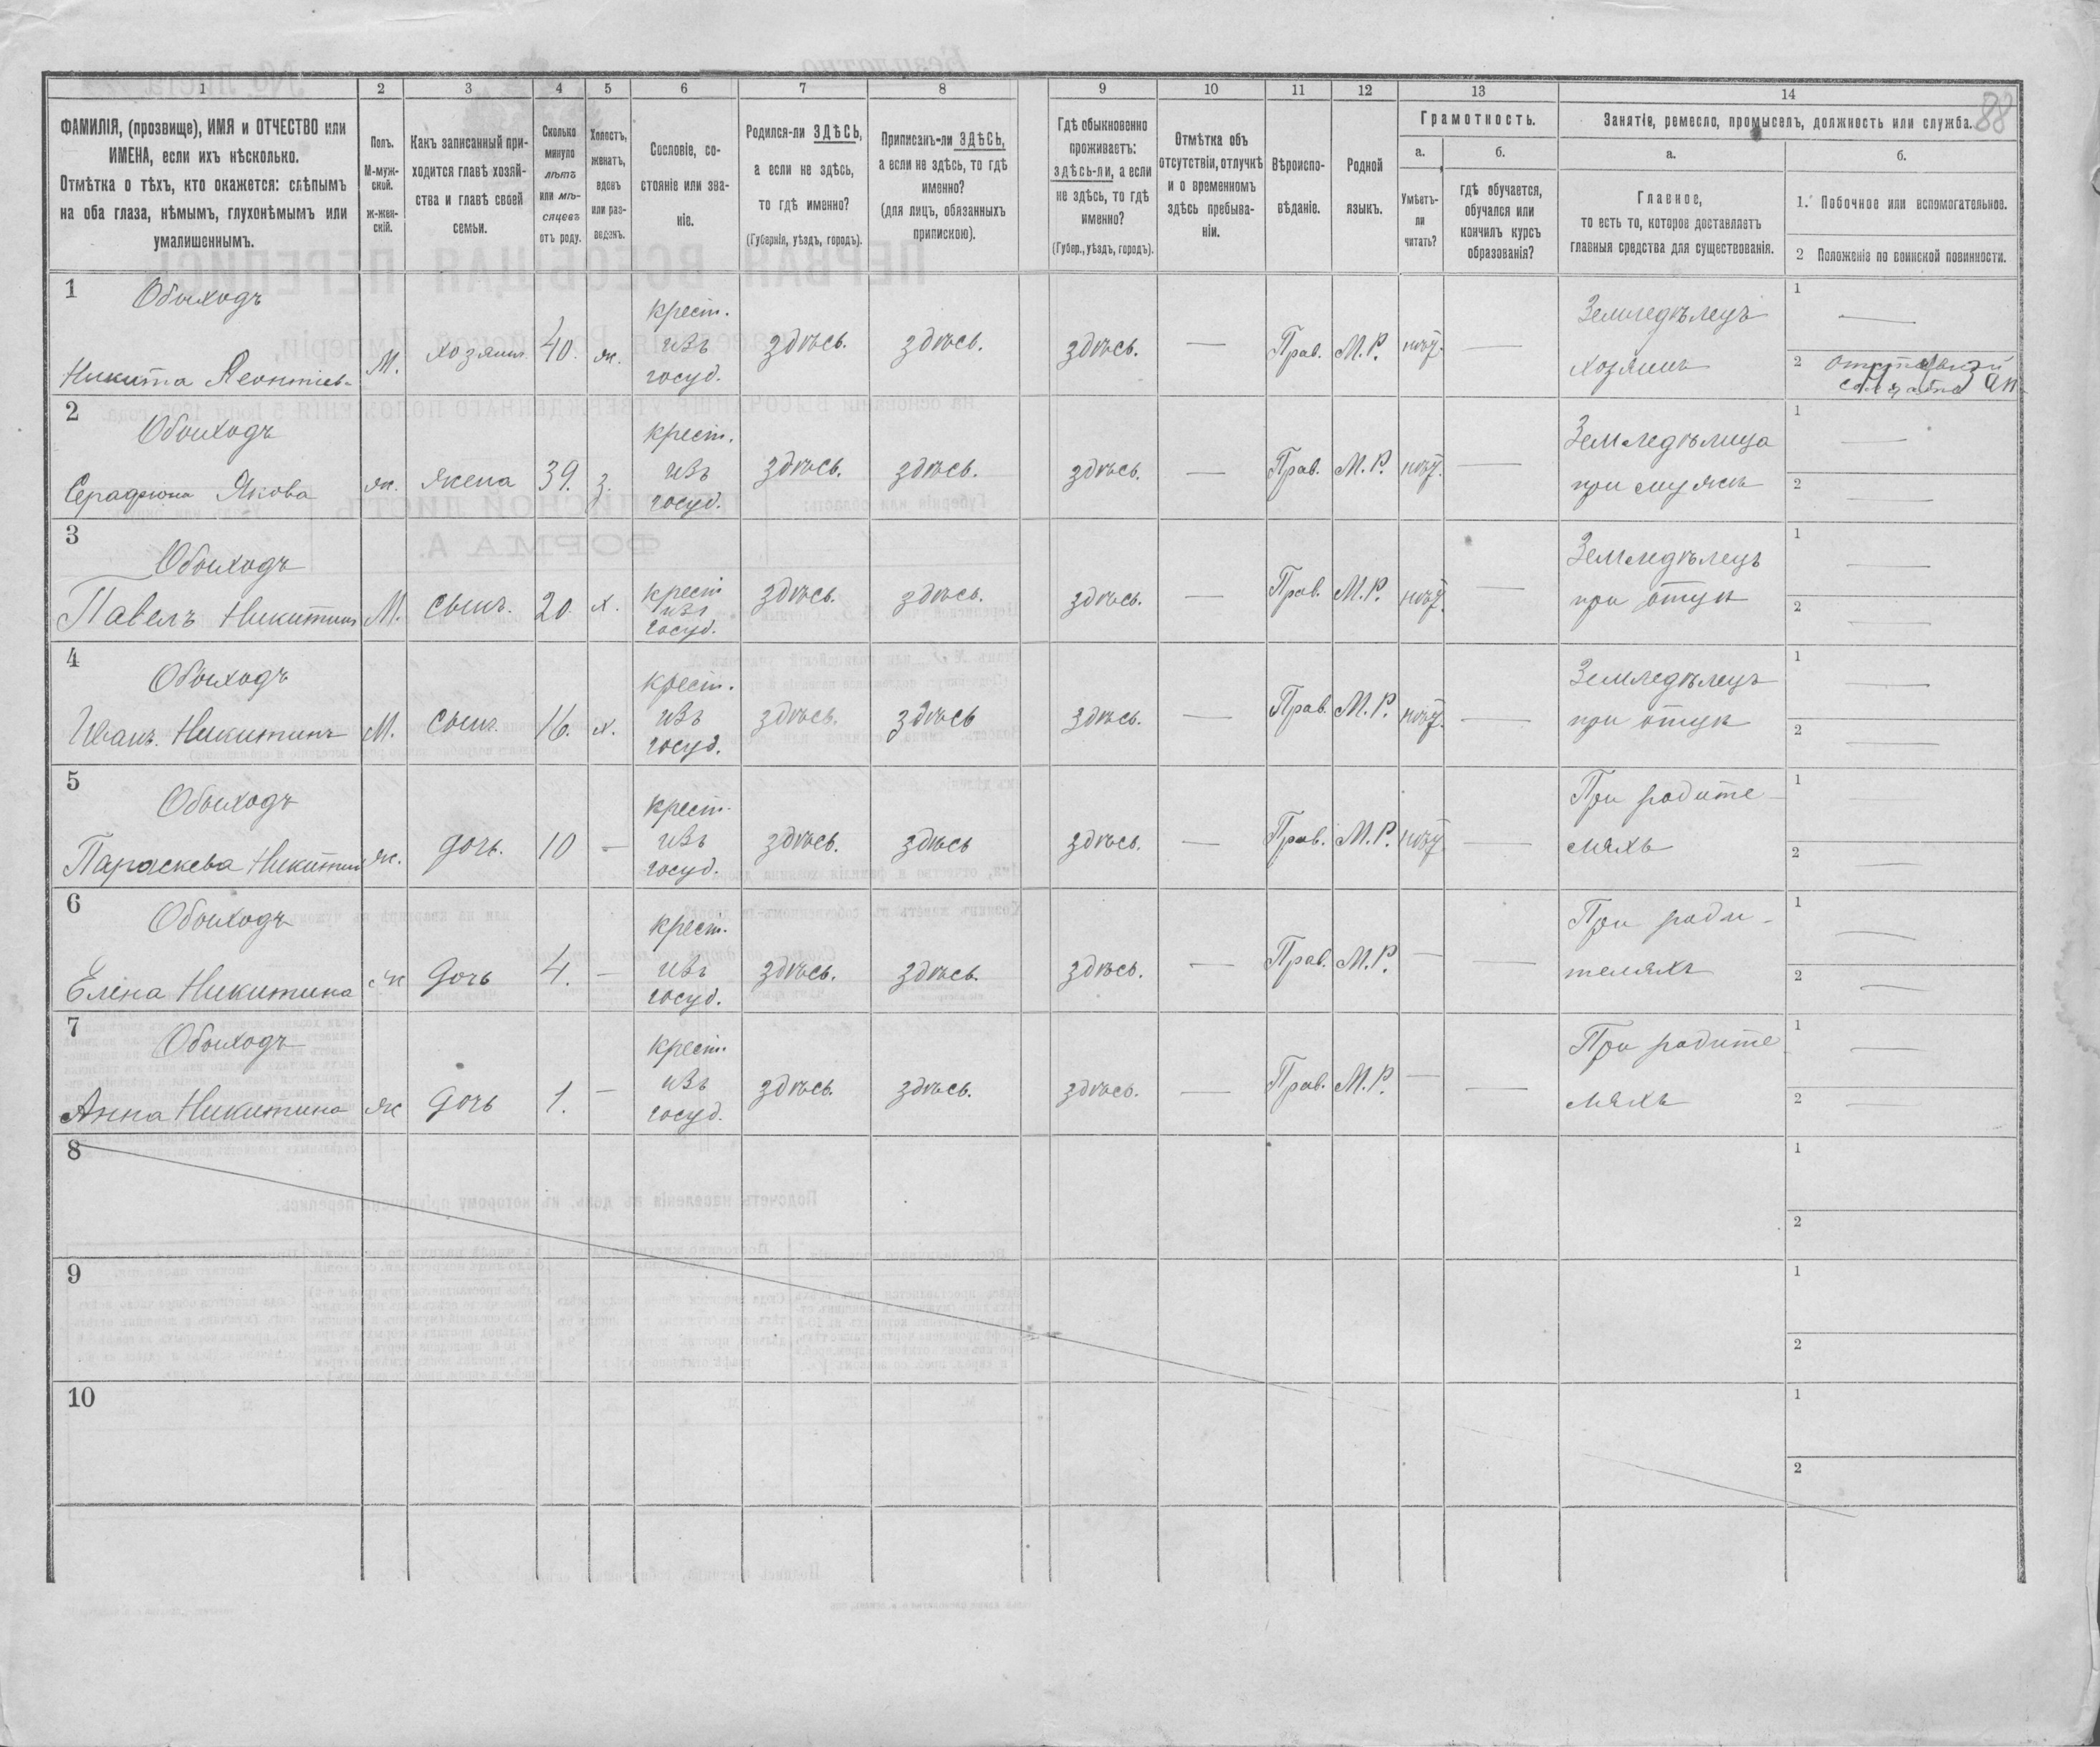 88
1 2 3 4 5 6 7 8 9 10 11 12 13 14
ФАМИЛІЯ, (прозвище), ИМЯ и ОТЧЕСТВО или
ИМЕНА, если ихъ нѣсколько.
Отмѣтка о тѣхъ, кто окажется: слѣпымъ
на оба глаза, нѣмымъ, глухонѣмымъ или
умалишеннымъ.
Полъ.
М-муж-
ской.
ж-жен-
скій.
Какъ записанный при-
ходится главѣ хозяй-
ства и главѣ своей
семьи.
Сколько
минуло
лѣтъ
или мѣ-
сяцевъ
отъ роду.
Холостъ,
женатъ,
вдовъ
или раз-
веденъ.
Сословіе, со-
стояніе или зва-
ніе.
Родился-ли ЗДѢСЬ,
а если не здѣсь,
то гдѣ именно?
(Губернія, уѣздъ, городъ).
Приписанъ-ли ЗДѢСЬ,
а если не здѣсь, то гдѣ
именно?
(для лицъ, обязанныхъ
припискою).
Гдѣ обыкновенно
проживаетъ:
здѣсь-ли, а если
не здѣсь, то гдѣ
именно?
(Губер., уѣздъ, городъ).
Отмѣтка объ
отсутствіи, отлучкѣ
и о временномъ
здѣсь пребыва-
ніи.
Вѣроиспо-
вѣданіе.
Родной
языкъ.
Грамотность.
а.
Умѣетъ-
ли
читать?
б.
гдѣ обучается,
обучался или
кончилъ курсъ
образованія?
Занятіе, ремесло, промыселъ, должность или служба.
а.
Главное,
то есть то, которое доставляетъ
главныя средства для существованія.
б.
1. Побочное или вспомогательное.
2 Положеніе по воинской повинности.
1 Обиходъ
Никита Леонтіев-
М. хозяин. 40. ж.
крест.
изъ
госуд.
здѣсь. здѣсь. здѣсь. — Прав. М.Р. нѣт. —
Земледѣлецъ
хозяинъ
1 —
2 отставной
солдатъ
2 Обиходъ
Серафима Якова
ж. жена 39. з.
крест.
изъ
госуд.
здѣсь. здѣсь. здѣсь. — Прав. М.Р. нѣт. —
Земледѣлица
при мужѣ
1 —
2 —
3 Обиходъ
Павелъ Никитинъ
М. сынъ. 20 х.
крест
изъ
госуд.
здѣсь. здѣсь. здѣсь. — Прав. М.Р. нѣт. —
Земледѣлецъ
при отцѣ
1 —
2 —
4 Обиходъ
Иванъ Никитинъ
М. сынъ. 16. х.
крест.
изъ
госуд.
здѣсь. здѣсь здѣсь. — Прав. М.Р. нѣт. —
Земледѣлецъ
при отцѣ
1 —
2 —
5 Обиходъ
Параскева Никитин
ж. дочь. 10 —
крест.
изъ
госуд.
здѣсь. здѣсь здѣсь. — Прав. М.Р. нѣт. —
При родите-
ляхъ
1 —
2 —
6 Обиходъ
Елена Никитина
ж дочь 4. —
крест.
изъ
госуд.
здѣсь. здѣсь. здѣсь. — Прав. М.Р. — —
При роди-
теляхъ
1 —
2 —
7 Обиходъ
Анна Никитина
ж дочь 1. —
крест.
изъ
госуд.
здѣсь. здѣсь. здѣсь. — Прав. М.Р. — —
При родите
ляхъ
1 —
2 —
8
1
2
9
1
2
10
1
2